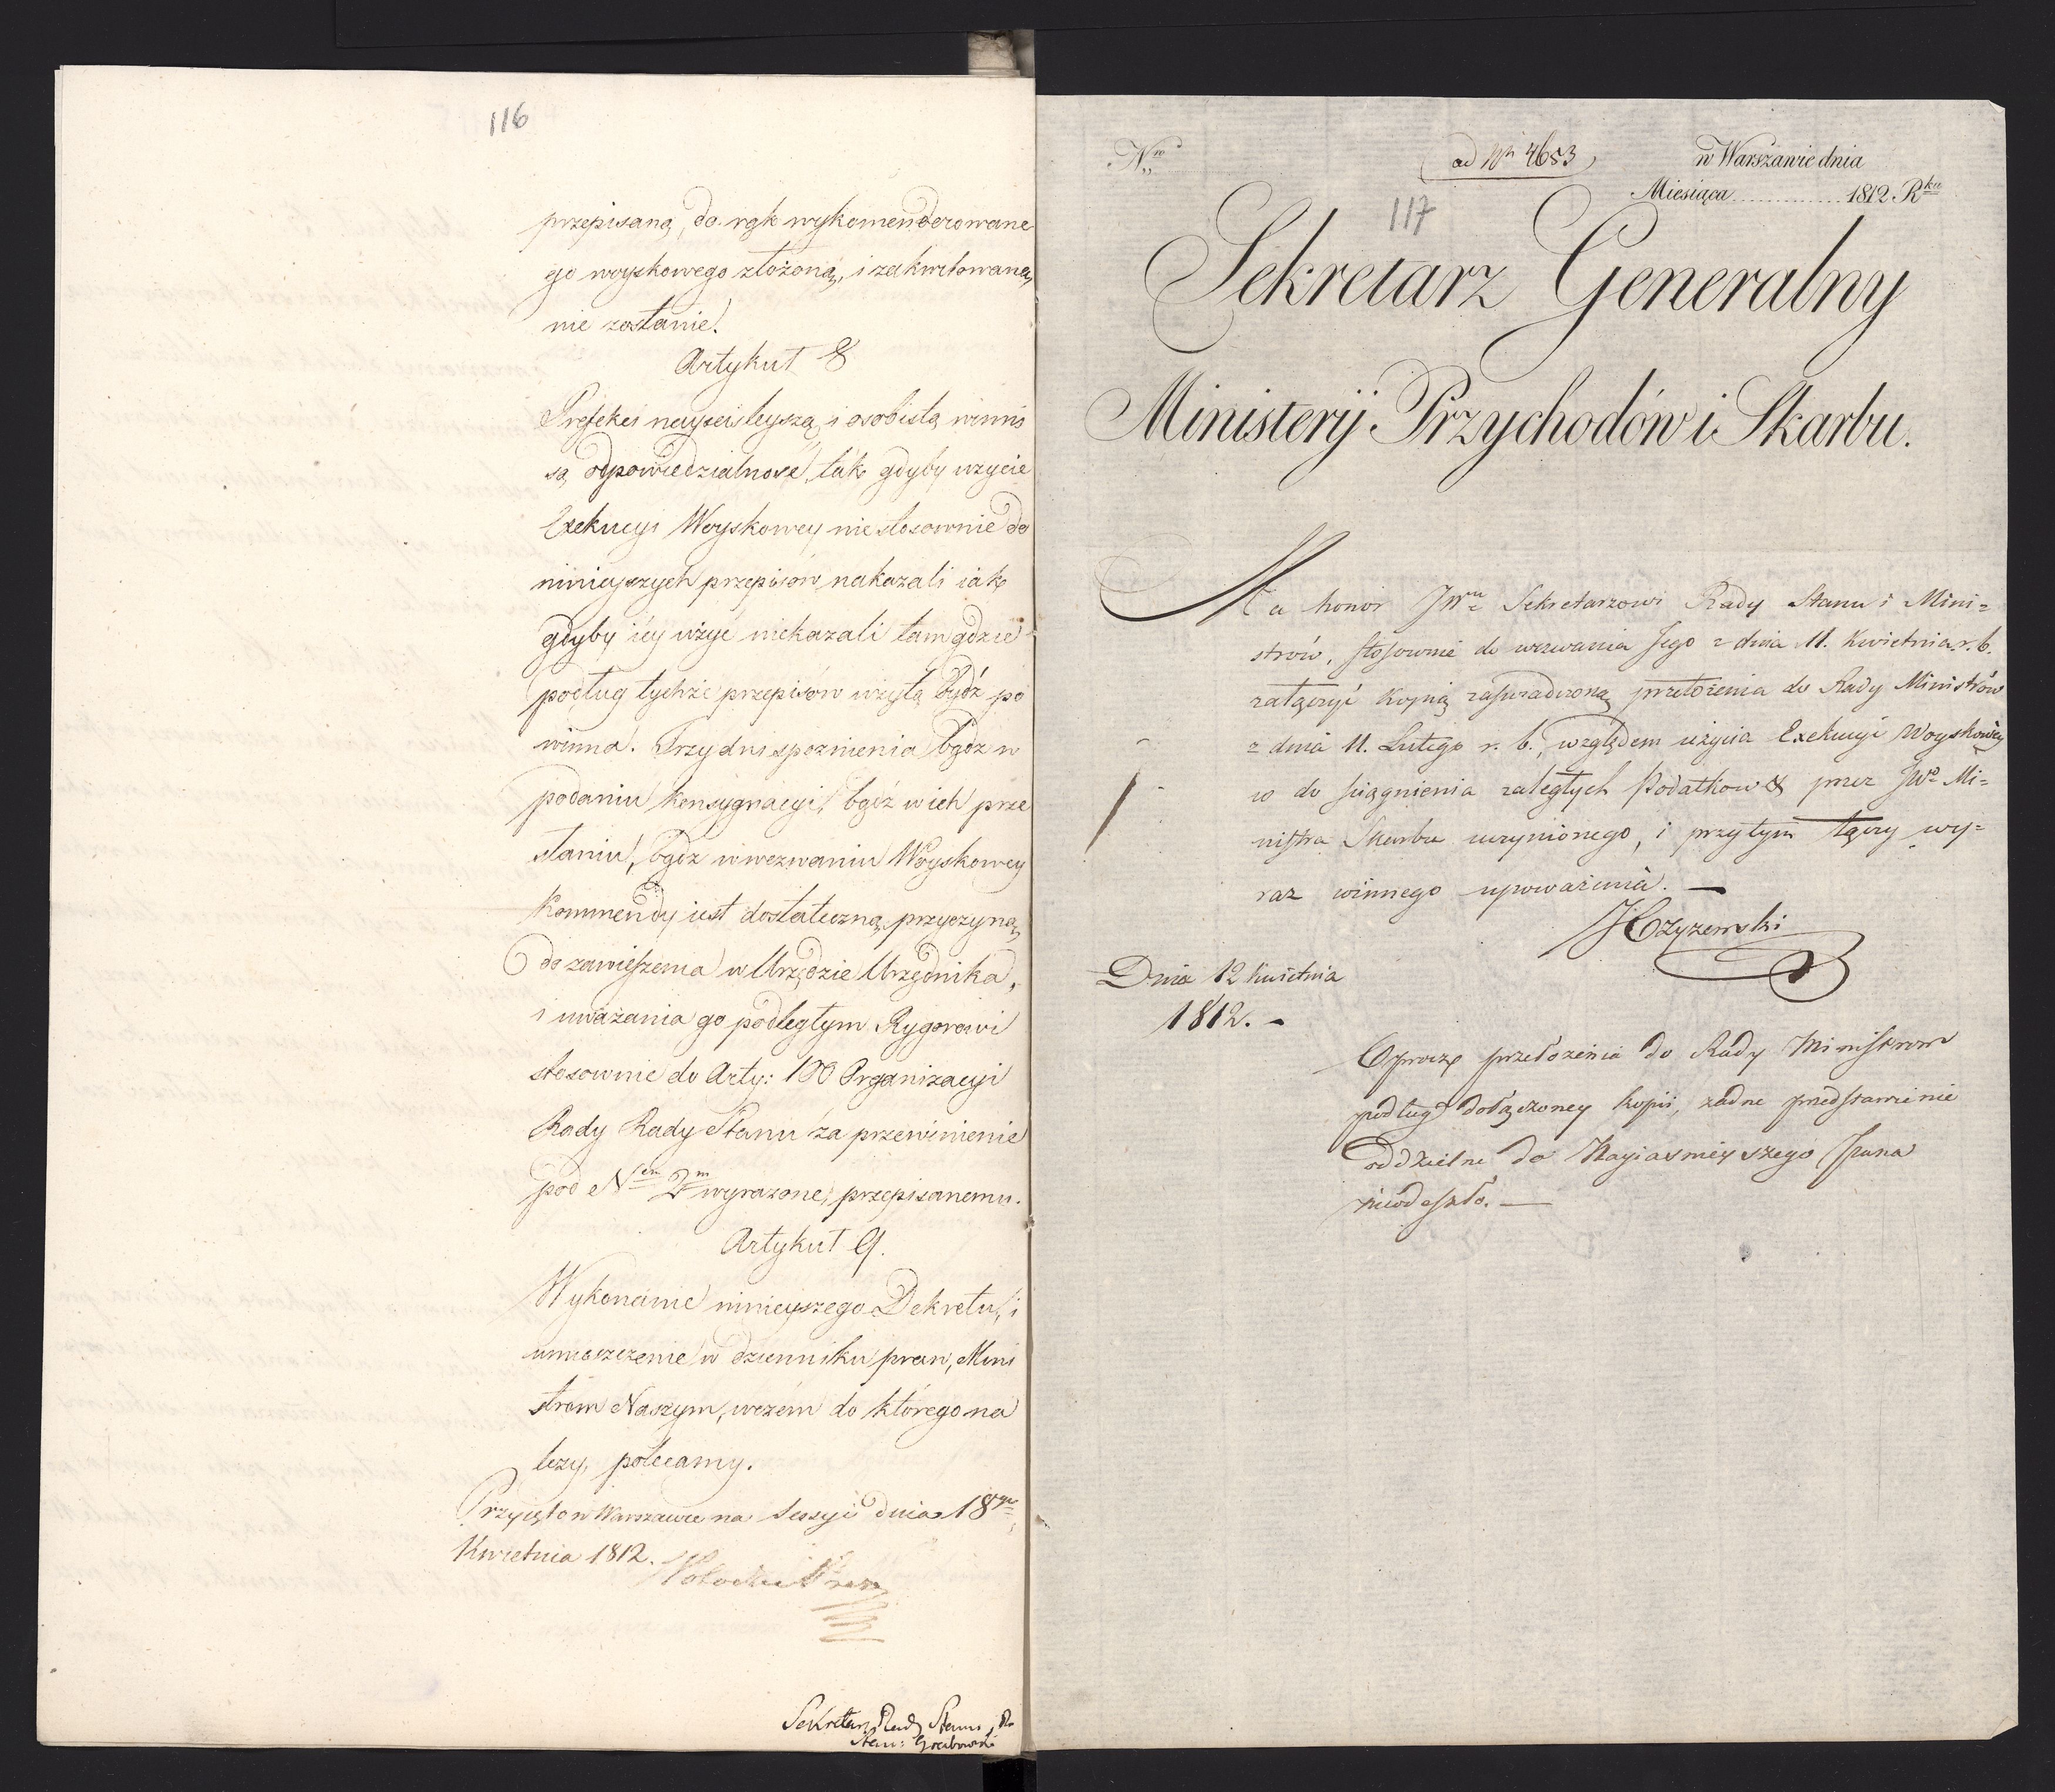 116
przepisaną, do rąk wykomenderowane
go woyskowego złożoną, i zakwitowaną
nie zostanie.
Artykuł 8
Prefekci nayściśleyszą i osobistą winni
są odpowiedzialność, tak gdyby użycie
Exekucyi Woyskowey nie stosownie do
ninieyszych przepisów nakazali iak
gdyby iéy użyć niekazali tam gdzie
podług tychże przepisów użytą bydź po
winna. Trzy dni spoznienia bądz w
podaniu konsygnacyi, bądź w ich prze
słaniu, bądz w wezwaniu Woyskowey
Kommendy iest dostateczną przyczyną
do zawieszenia w Urzędzie Urzędnika,
i uważania go podległym Rygorowi
stosownie do Arty: 100 Organizacyi
Rady Rady Stanu za przewinienie
pod Nem 2m wyrazone, przepisanemu.
Artykuł 9.
Wykonanie ninieyszego Dekretu, i
umieszczenie w dzienniku praw, Mini
strom Naszym, wczém do którego na
leży, polecamy.
Przyięto w Warszawie na Sessyi dnia 18go
Kwietnia 1812.
Sekretarz Rady Stanu
Stan: Grabowski
Nro
ad Nri 4653
w Warszawie dnia
Miesiąca 1812 Rku
117
Sekretarz Generalny
Ministerij Przychodów i Skarbu.
Ma honor JWmu Sekretarzowi Rady Stanu i Mini=
strów, stosownie do wezwania Jego z dnia 11. Kwietnia r. b.
załączyć Kopią zaświadczoną przełożenia do Rady Ministrów
z dnia 11. Lutego r. b. względem użycia Exekucyi Woyskowéy
w do ściągnienia zaległych Podatków & przez JWo Mi=
nistra Skarbu uczynionego, i przytym łączy wy=
raz winnego upoważenia. —
Czyzewski
Dnia 12 kwietnia
1812. -
Oprocz przełożenia do Rady Ministrow
podług dołączoney kopii, żadne przedstawienie
oddzielne do Nayiasnieyszego Pana
nieodeszło. —